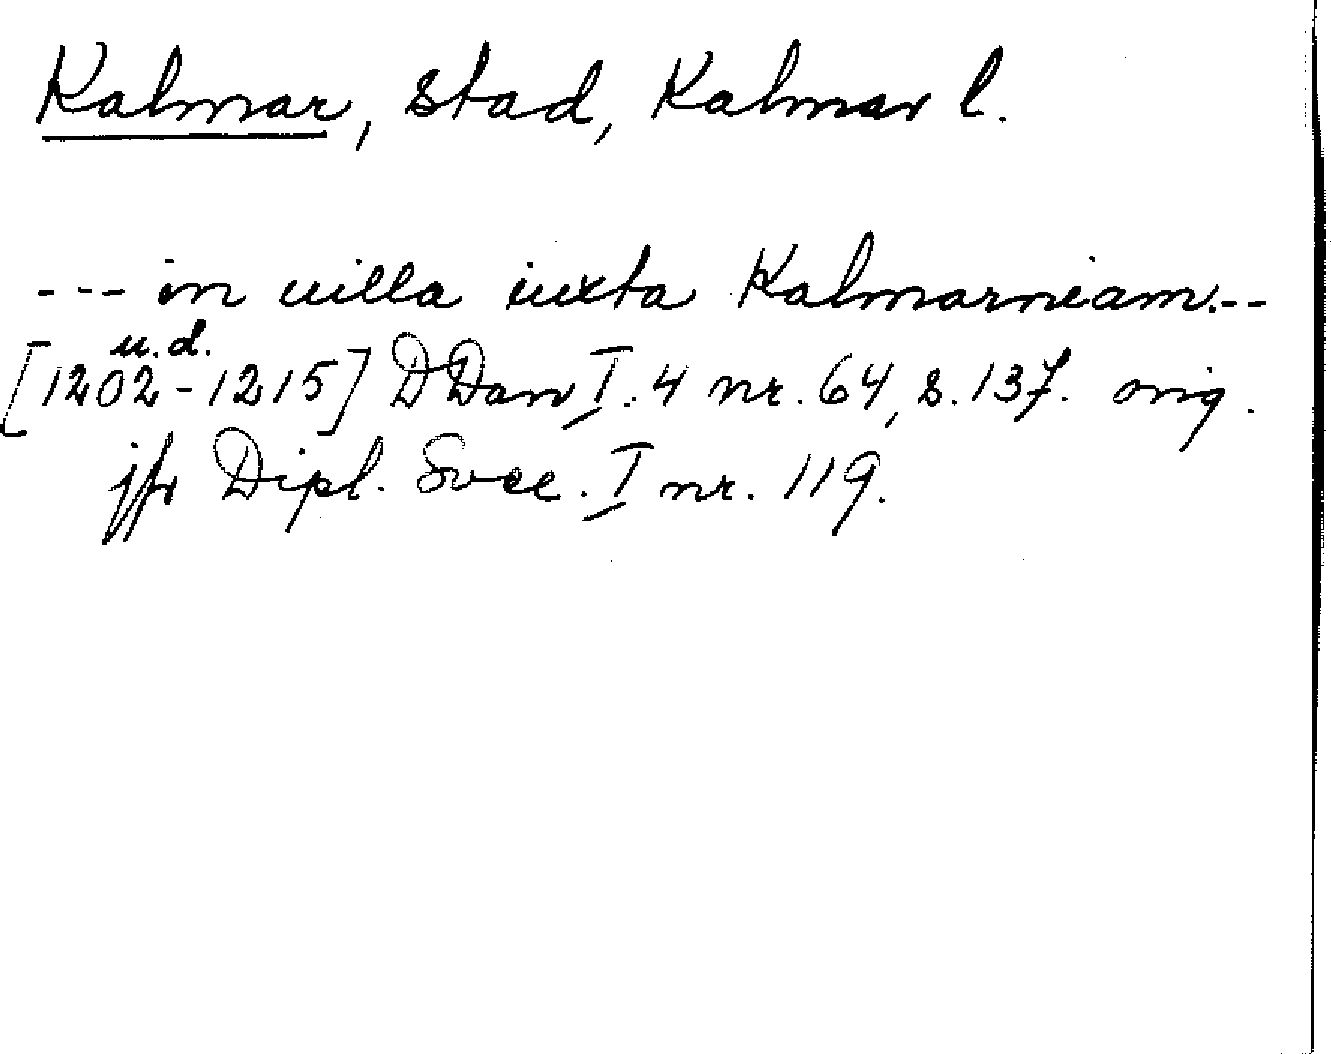 Kalmar, stad, Kalmar l.
--- in uilla iuxta Kalmarniam.--
u.d.
[1202-1215] DDan I:4 nr. 64, s. 137. orig.
jfr Dipl. Svec. I nr. 119.